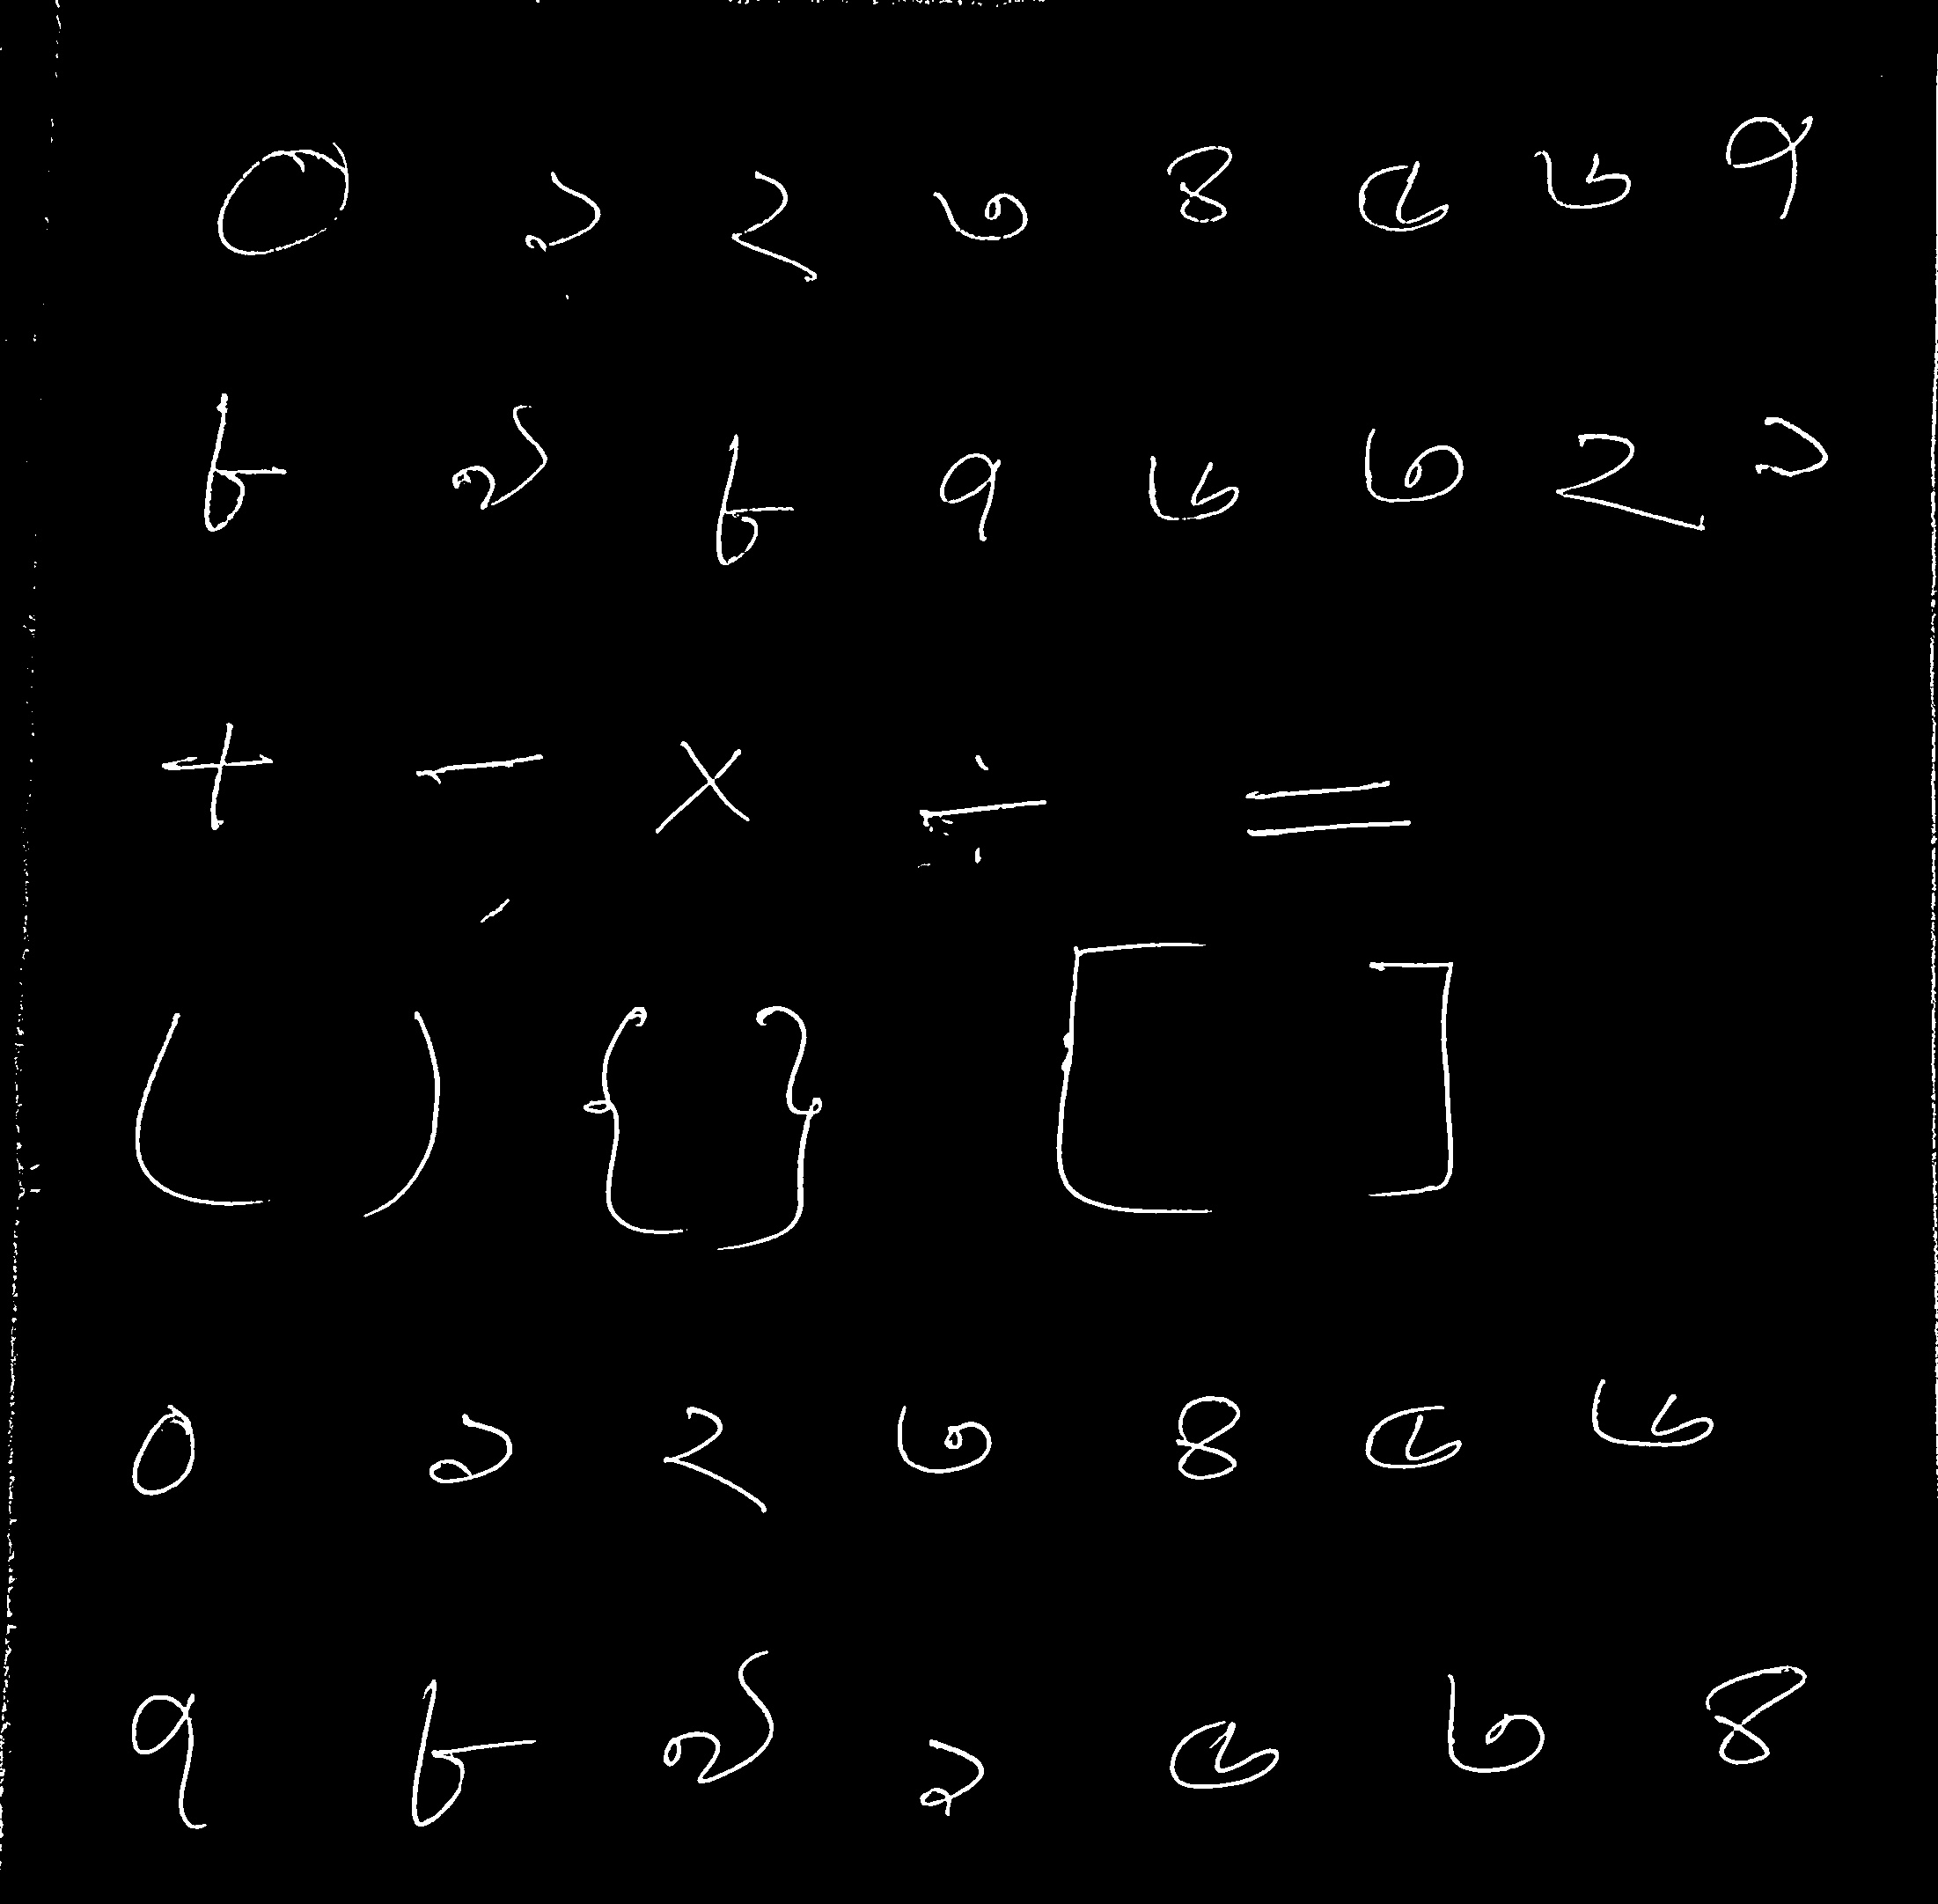 ০ ১ ২ ৩ ৪ ৫ ৬ ৭
৮ ৯ ৮ ৭ ৬ ৩ ২ ১
+ − × ÷ =
( ) { } [ ]
০ ১ ২ ৩ ৪ ৫ ৬
৭ ৮ ৯ ১ ৫ ৩ ৪